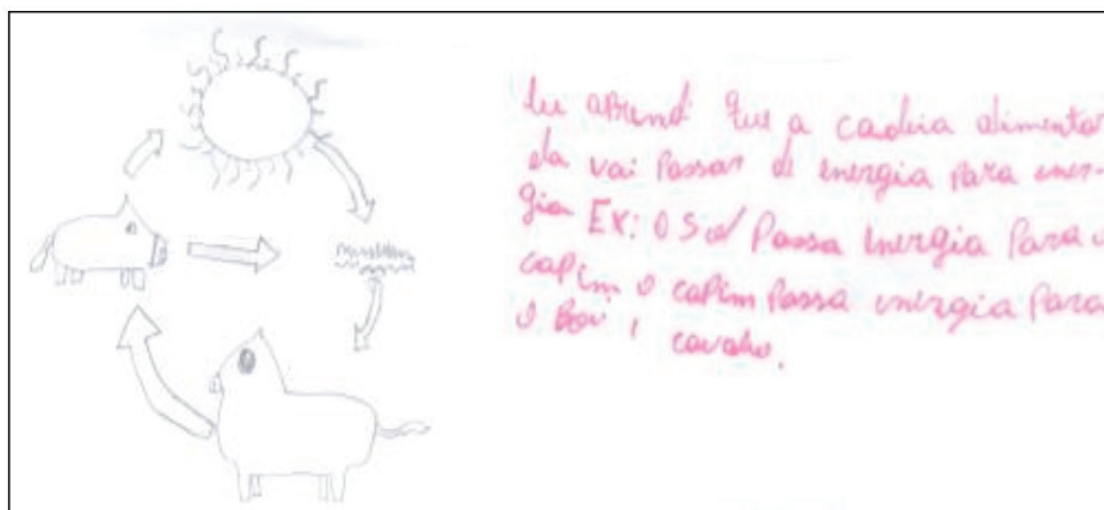 Eu aprendi que a cadeia alimentar
ela vai Passar de energia Para ener-
gia EX: O Sol Passa Energia Para o
capim o capim Passa energia Para
o Boi, cavalo.